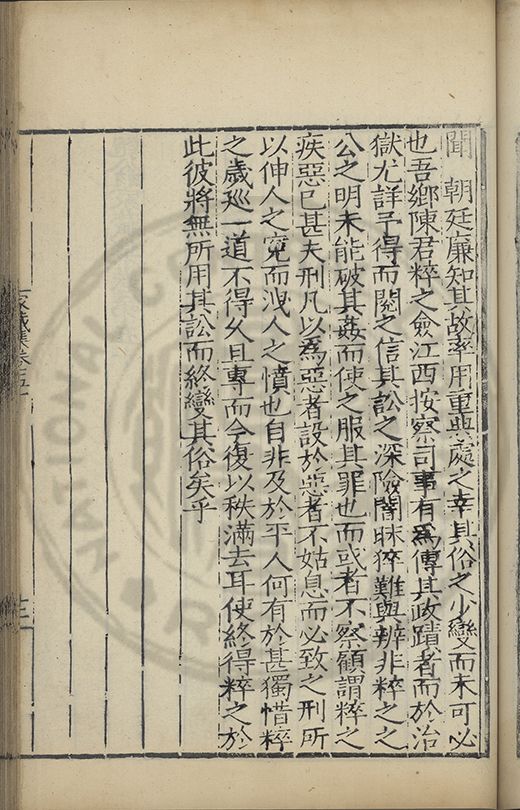 聞　朝廷廉知其故率用重典處之幸其俗之少變而未可必
也吾鄉陳君粹之僉江西按察司事有爲傳其政蹟者而於治
獄尤詳予得而閱之信其訟之深險闇昧猝難與辨非粹之之
公之明未能破其姦而使之服其罪也而或者不察顧謂粹之
疾惡已甚夫刑凡以爲惡者設於惡者不姑息而必致之刑所
以伸人之寃而洩人之憤也自非及於平人何有於甚獨惜粹
之歲廵一道不得乆且專而今復以秩滿去耳使終得粹之於
此彼將無所用其訟而終變其俗矣乎
家藏集卷五十
NATIONAL CENTRAL